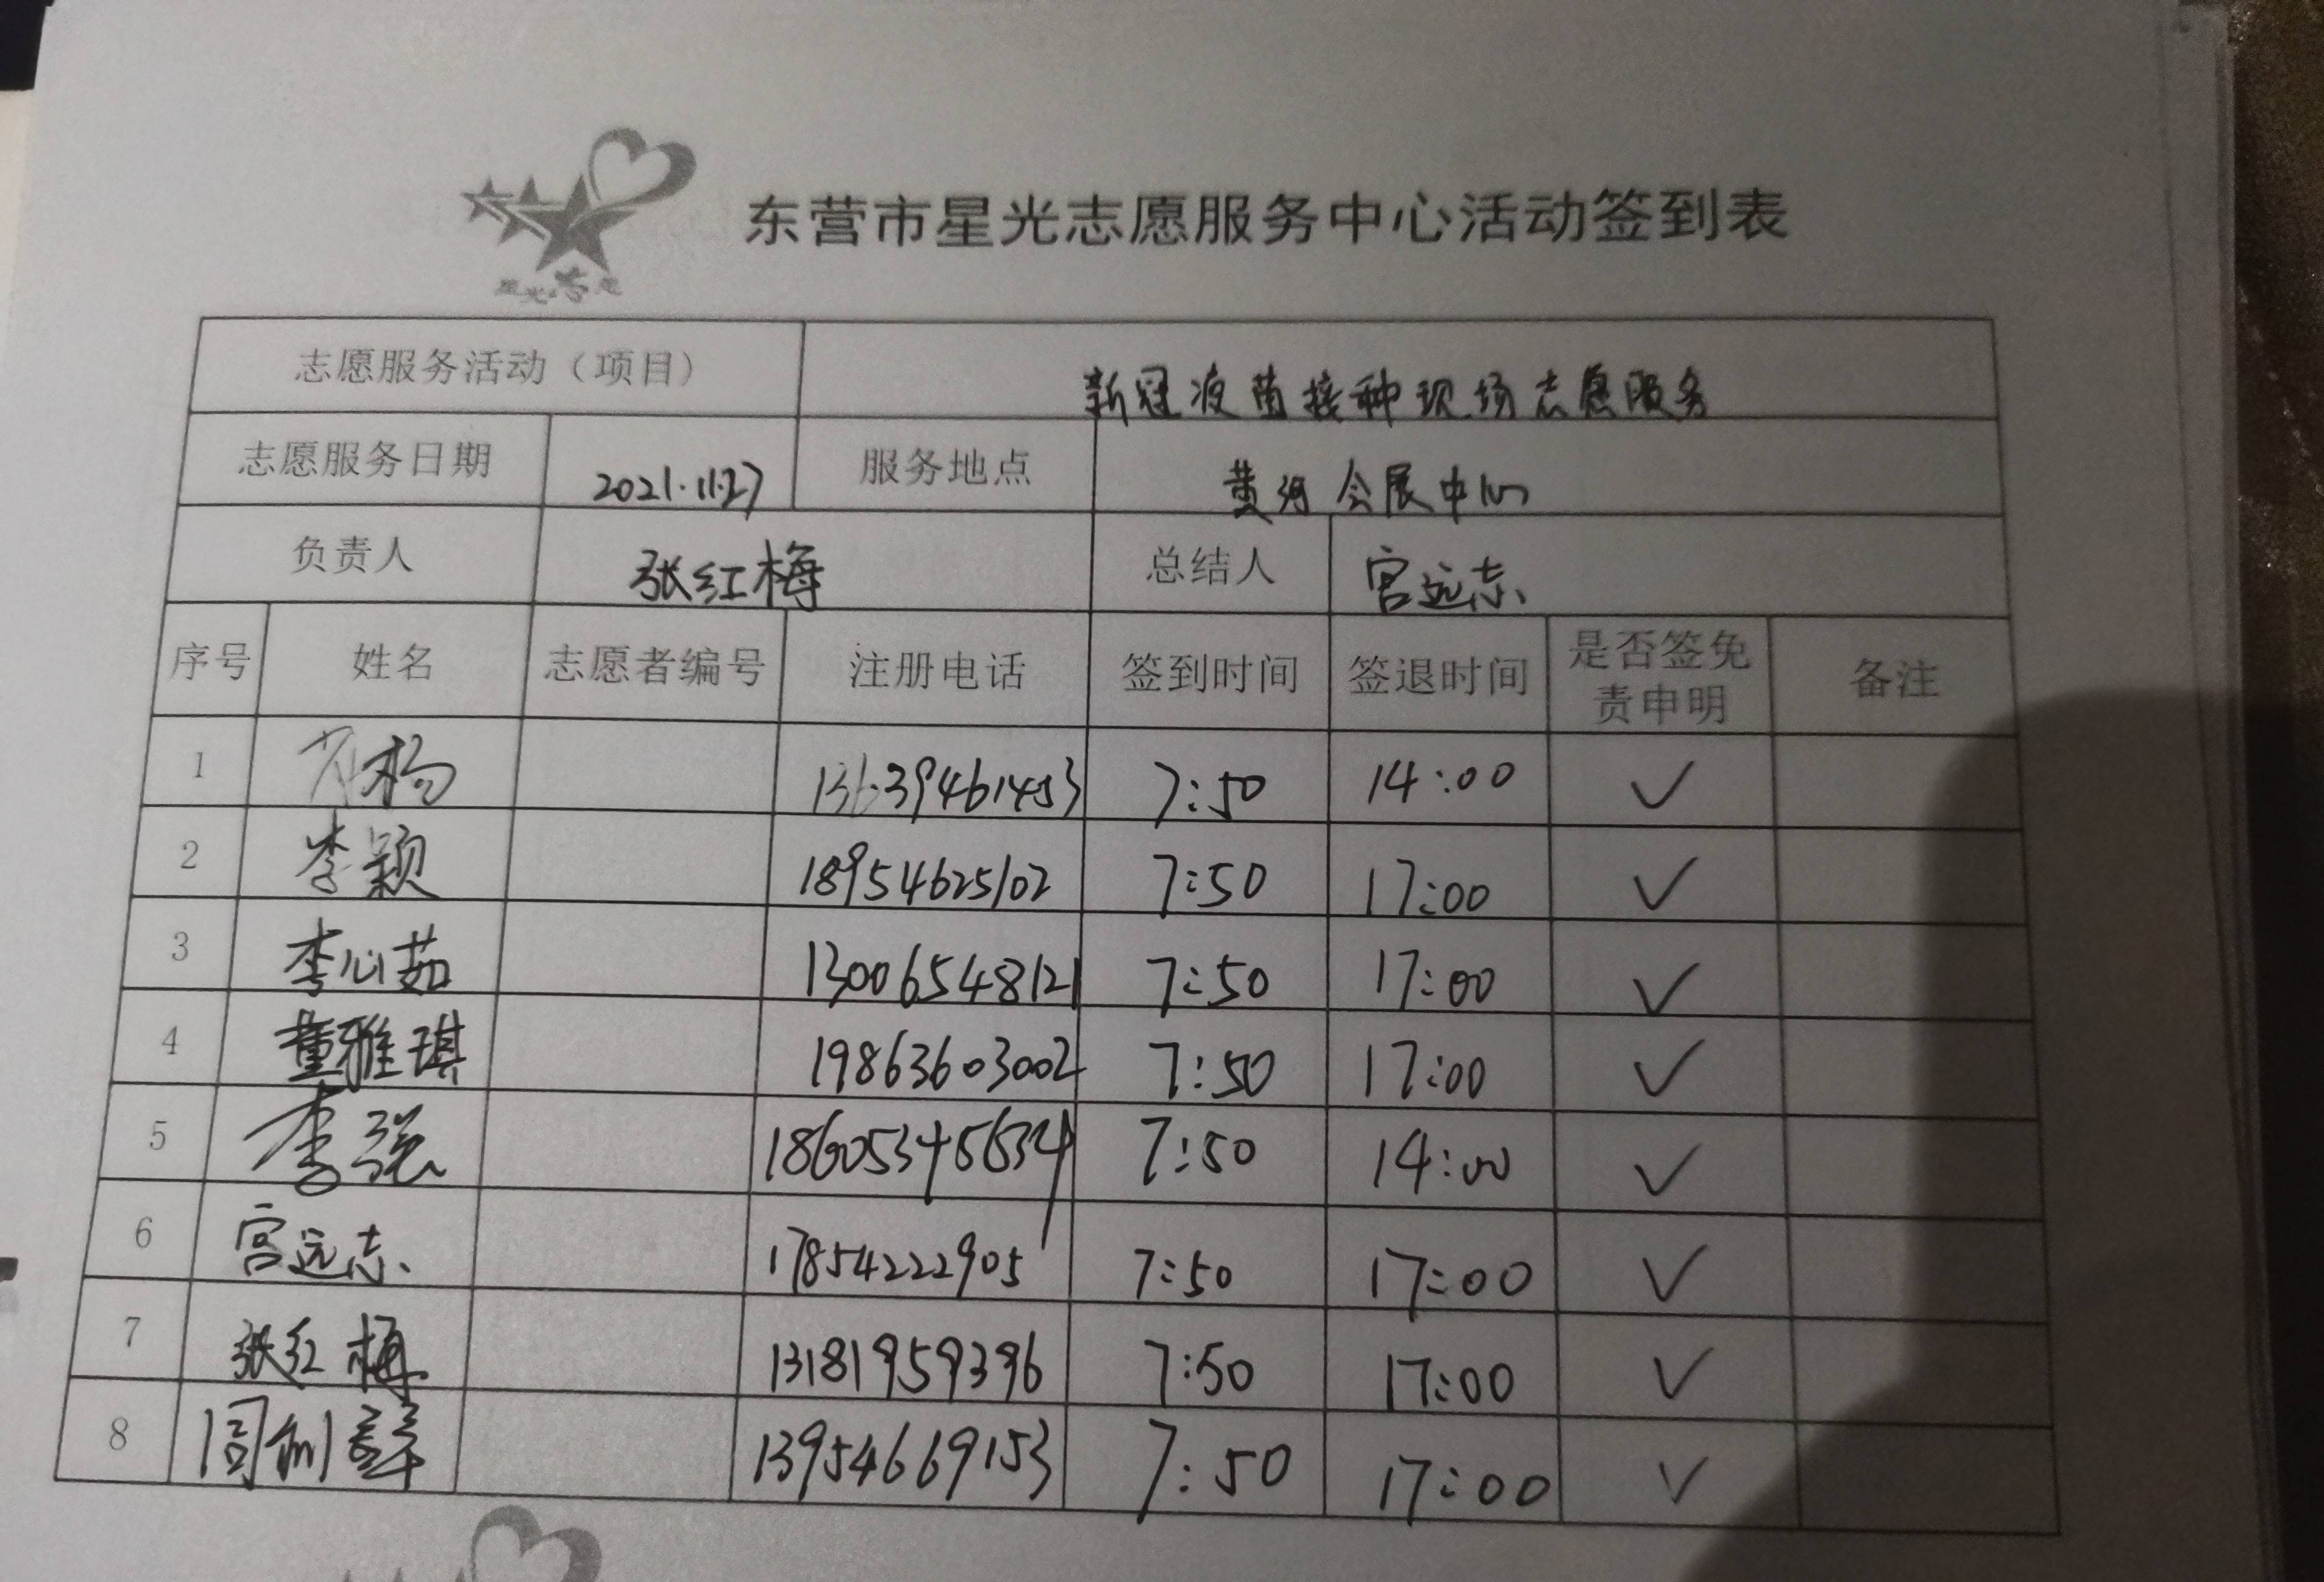 星光志愿
东营市星光志愿服务中心活动签到表
志愿服务活动（项目） 新冠疫苗接种现场志愿服务
志愿服务日期 2021.11.27 服务地点 黄河会展中心
负责人 张红梅 总结人 宫远志
序号 姓名 志愿者编号 注册电话 签到时间 签退时间 是否签免责申明 备注
1 杨 13639461453 7:50 14:00 ✓
2 李颖 18954625102 7:50 17:00 ✓
3 李心茹 13006548121 7:50 17:00 ✓
4 董雅琪 19863603002 7:50 17:00 ✓
5 李强 18605345634 7:50 14:00 ✓
6 宫远志 17854222905 7:50 17:00 ✓
7 张红梅 13181959396 7:50 17:00 ✓
8 周 13954669153 7:50 17:00 ✓